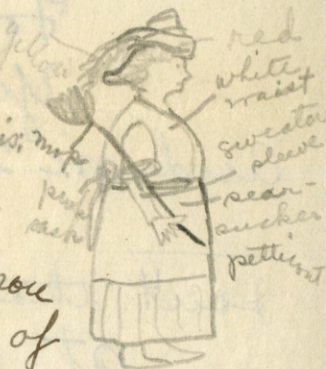 red
white
waist
sweater
sleeve
sear-
sucker
petticoat
mop
pink
sash
of